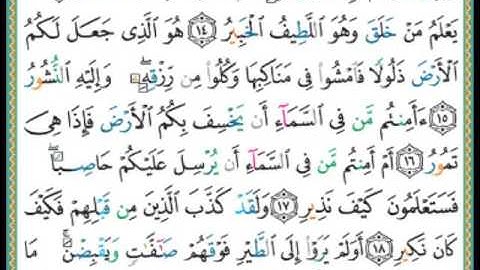 يَعْلَمُ مَنْ خَلَقَ وَهُوَ اللَّطِيفُ الْخَبِيرُ ١٤ هُوَ الَّذِى جَعَلَ لَكُمُ
الْأَرْضَ ذَلُولًا فَامْشُوا فِى مَنَاكِبِهَا وَكُلُوا مِن رِّزْقِهِ ۖ وَإِلَيْهِ النُّشُورُ
١٥ ءَأَمِنتُم مَّن فِى السَّمَآءِ أَن يَخْسِفَ بِكُمُ الْأَرْضَ فَإِذَا هِىَ
تَمُورُ ١٦ أَمْ أَمِنتُم مَّن فِى السَّمَآءِ أَن يُرْسِلَ عَلَيْكُمْ حَاصِبًا ۖ
فَسَتَعْلَمُونَ كَيْفَ نَذِيرِ ١٧ وَلَقَدْ كَذَّبَ الَّذِينَ مِن قَبْلِهِمْ فَكَيْفَ
كَانَ نَكِيرِ ١٨ أَوَلَمْ يَرَوْا إِلَى الطَّيْرِ فَوْقَهُمْ صَٰٓفَّٰتٍ وَيَقْبِضْنَ ۚ مَا